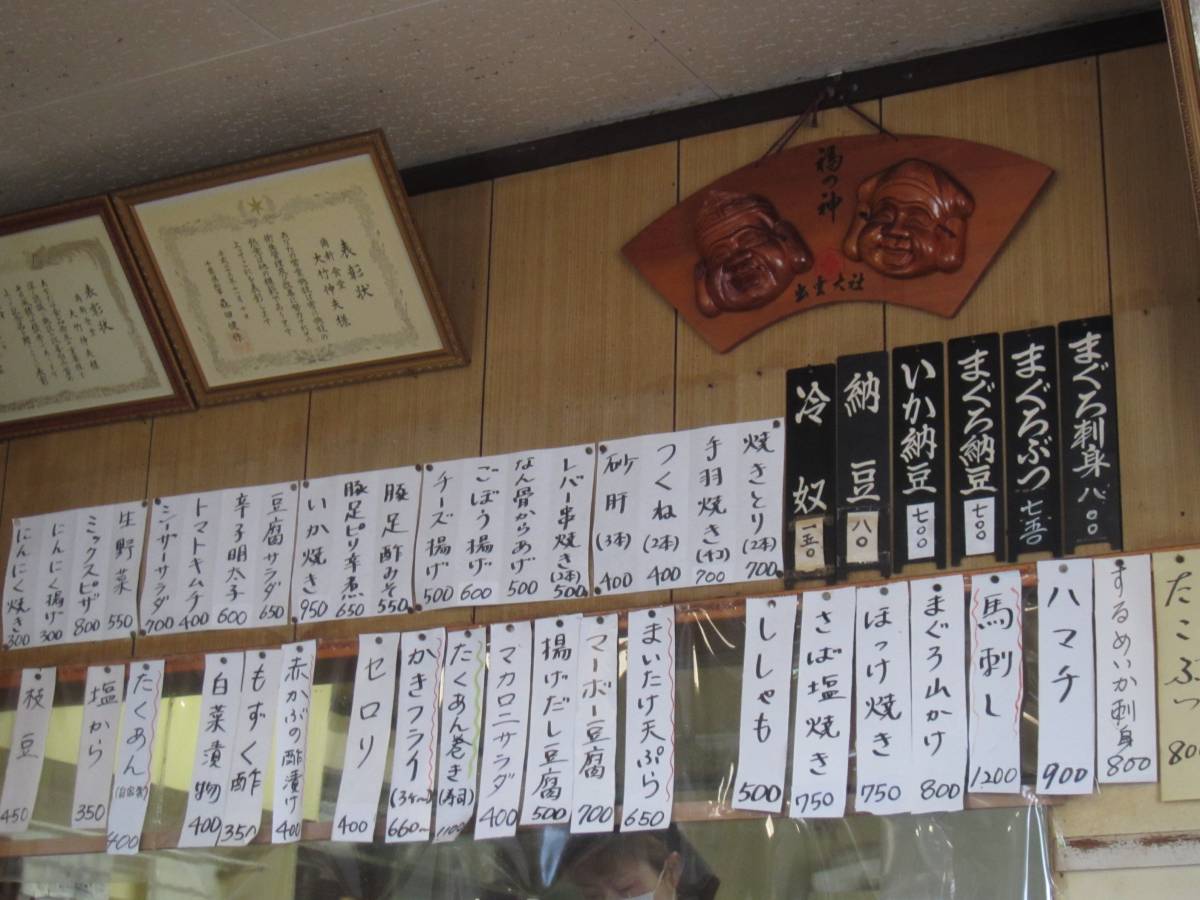 福の神
出雲大社
表彰状
大竹伸夫様
表彰状
まぐろ刺身 八〇〇
まぐろぶつ 七五〇
まぐろ納豆 七〇〇
いか納豆 七〇〇
納豆 八〇
冷奴 一五〇
焼きとり(2本) 700
手羽焼き(4コ) 700
つくね(2本) 400
砂肝(3本) 400
レバー串焼き(2本) 500
なん骨からあげ 500
ごぼう揚げ 600
チーズ揚げ 500
豚足酢みそ 550
豚足ピリ辛煮 650
いか焼き 950
豆腐サラダ 650
辛子明太子 600
トマトキムチ 400
シーザーサラダ 700
生野菜 550
ミックスピザ 800
にんにく揚げ 300
にんにく焼き 300
たこぶつ
するめいか刺身 800
ハマチ 900
馬刺し 1200
まぐろ山かけ 800
ほっけ焼き 750
さば塩焼き 750
ししゃも 500
まいたけ天ぷら 650
マーボー豆腐 700
揚げだし豆腐 500
マカロニサラダ 400
たくあん巻き(寿司) 1100
かきフライ 660〜
セロリ 400
赤かぶの酢漬け 400
もずく酢 350
白菜漬物 400
たくあん(自家製) 400
塩から 350
枝豆 450